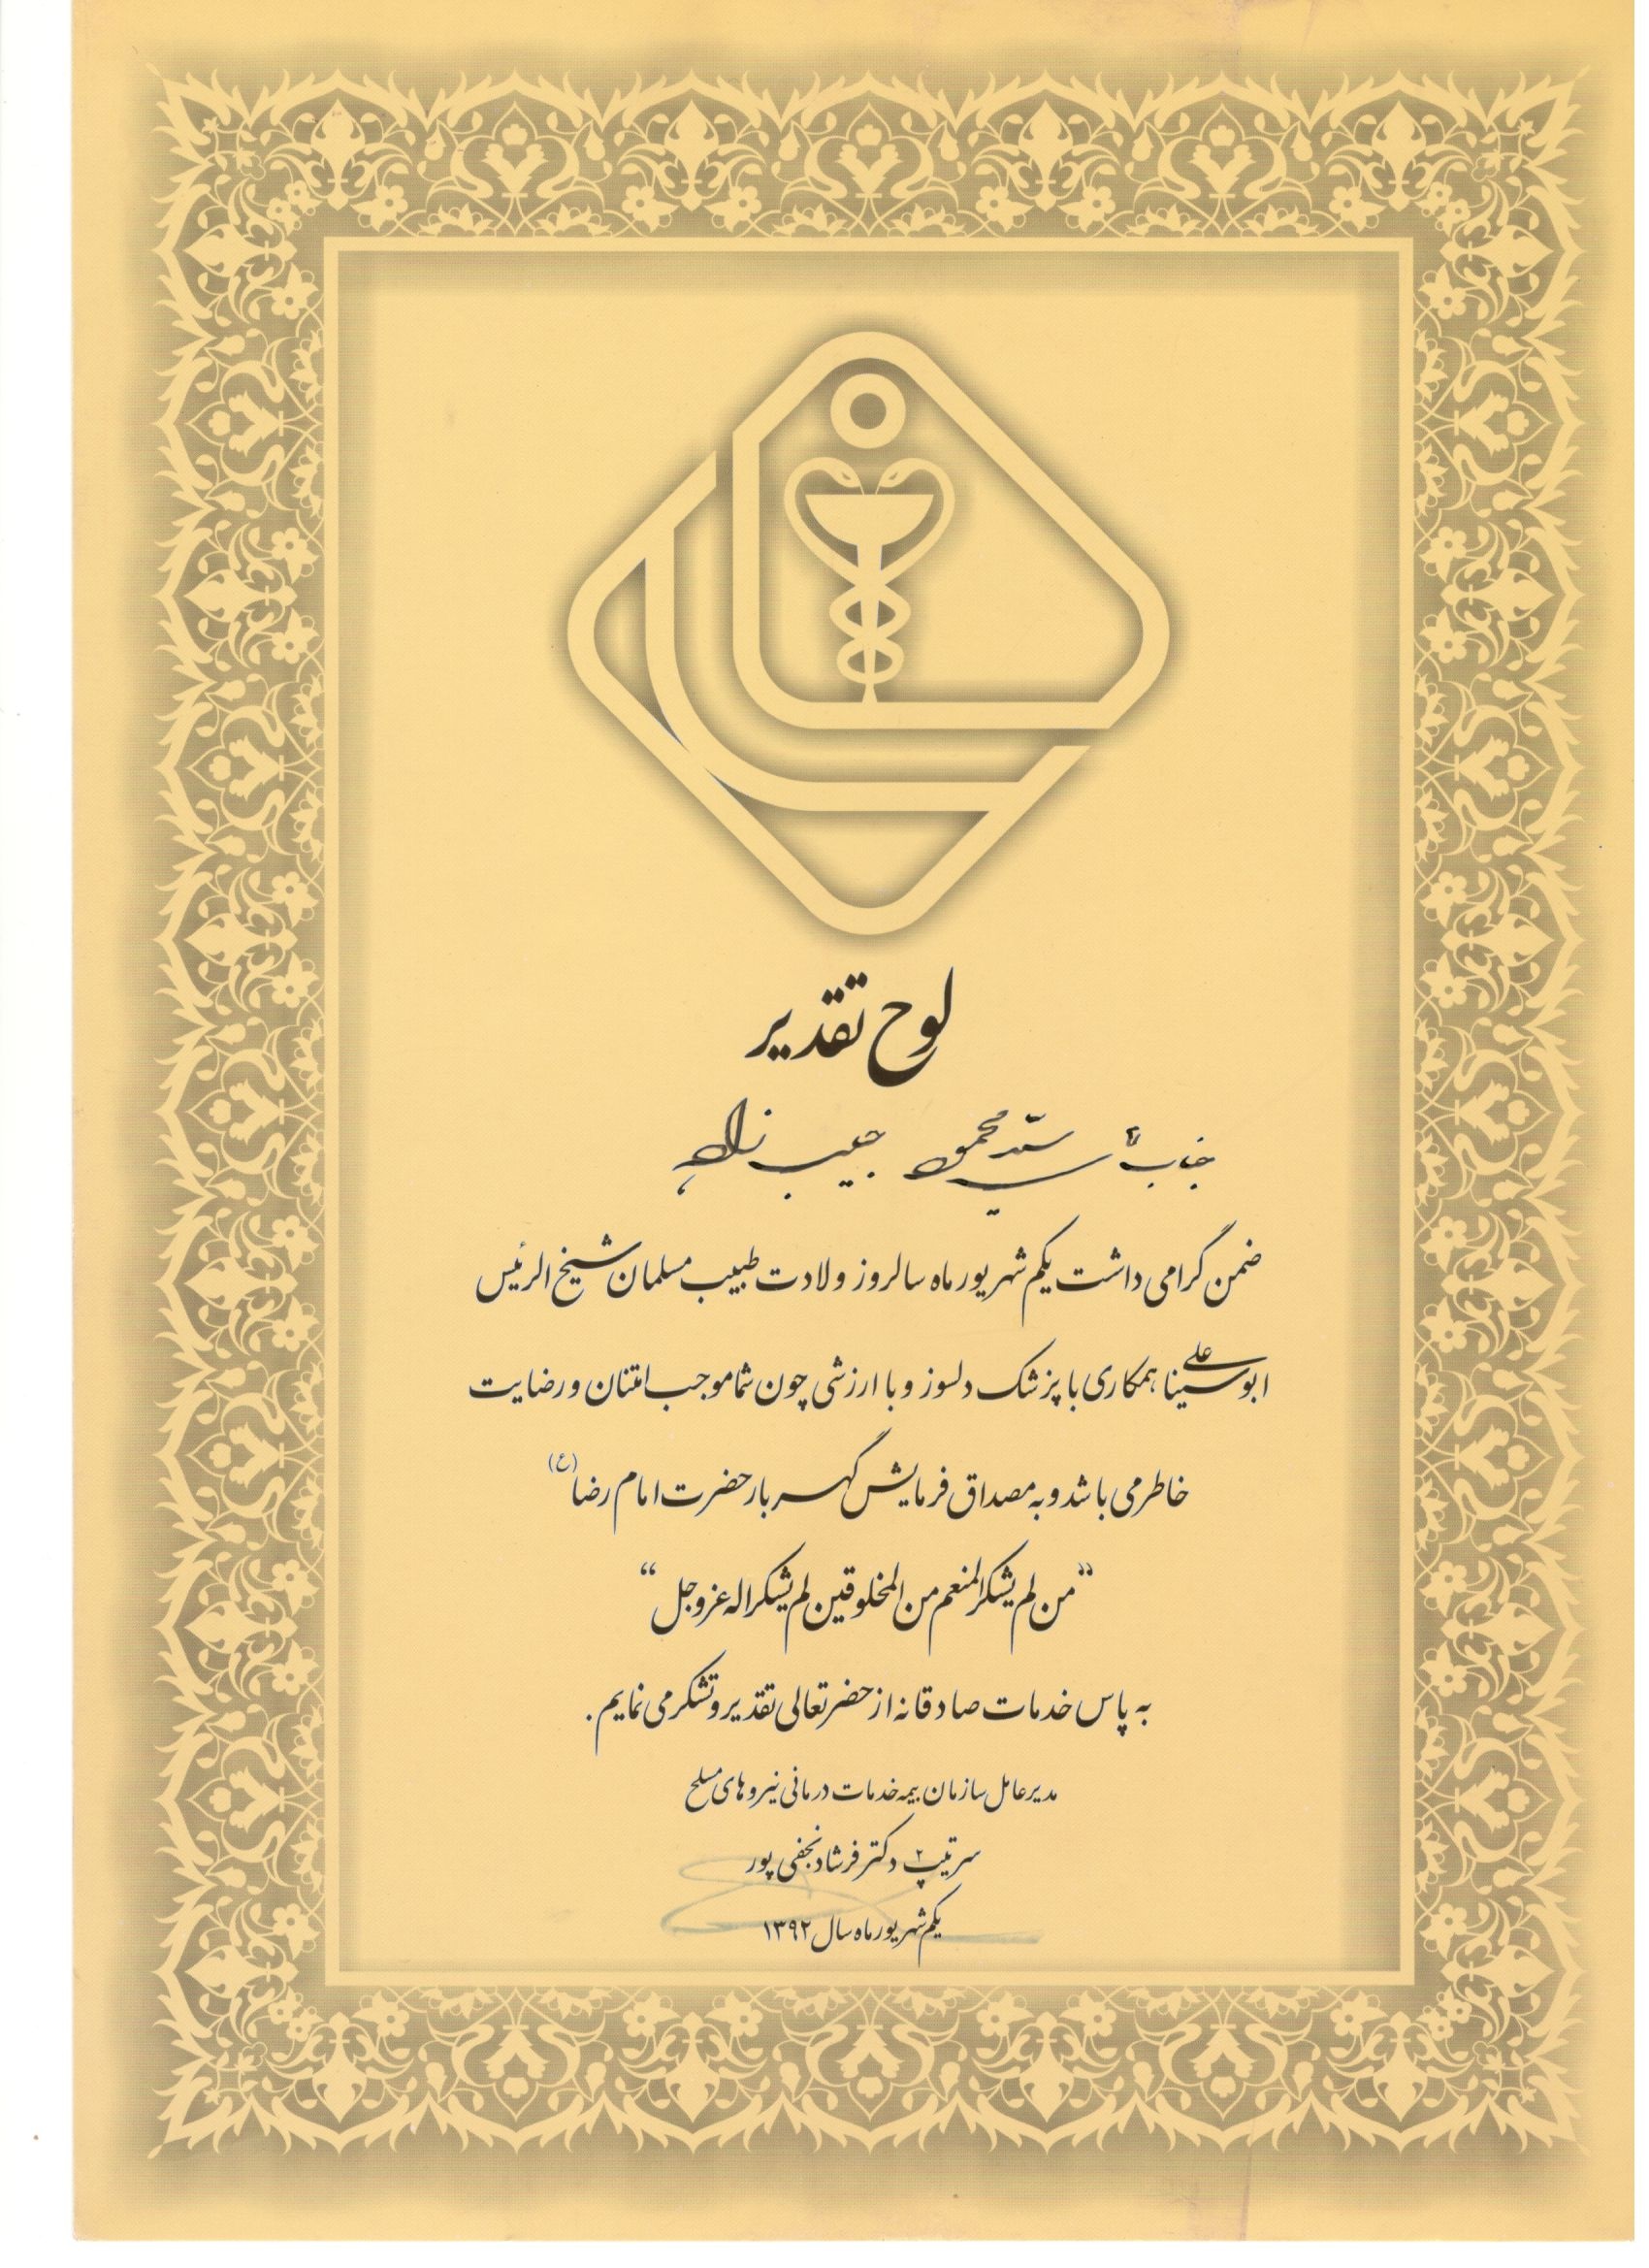 لوح تقدیر
جناب آقای سید محمود حبیب زاده
ضمن گرامی داشت یکم شهریور ماه سالروز ولادت طبیب مسلمان شیخ الرئیس
ابوعلی سینا همکاری با پزشک دلسوز و با ارزشی چون شما موجب امتنان و رضایت
خاطر می باشد و به مصداق فرمایش گهربار حضرت امام رضا (ع)
"من لم یشکر المنعم من المخلوقین لم یشکر اله عزوجل"
به پاس خدمات صادقانه از حضرتعالی تقدیر و تشکر می نمایم.
مدیر عامل سازمان بیمه خدمات درمانی نیروهای مسلح
سرتیپ ۲ دکتر فرشاد نجفی پور
یکم شهریور ماه سال ۱۳۹۲